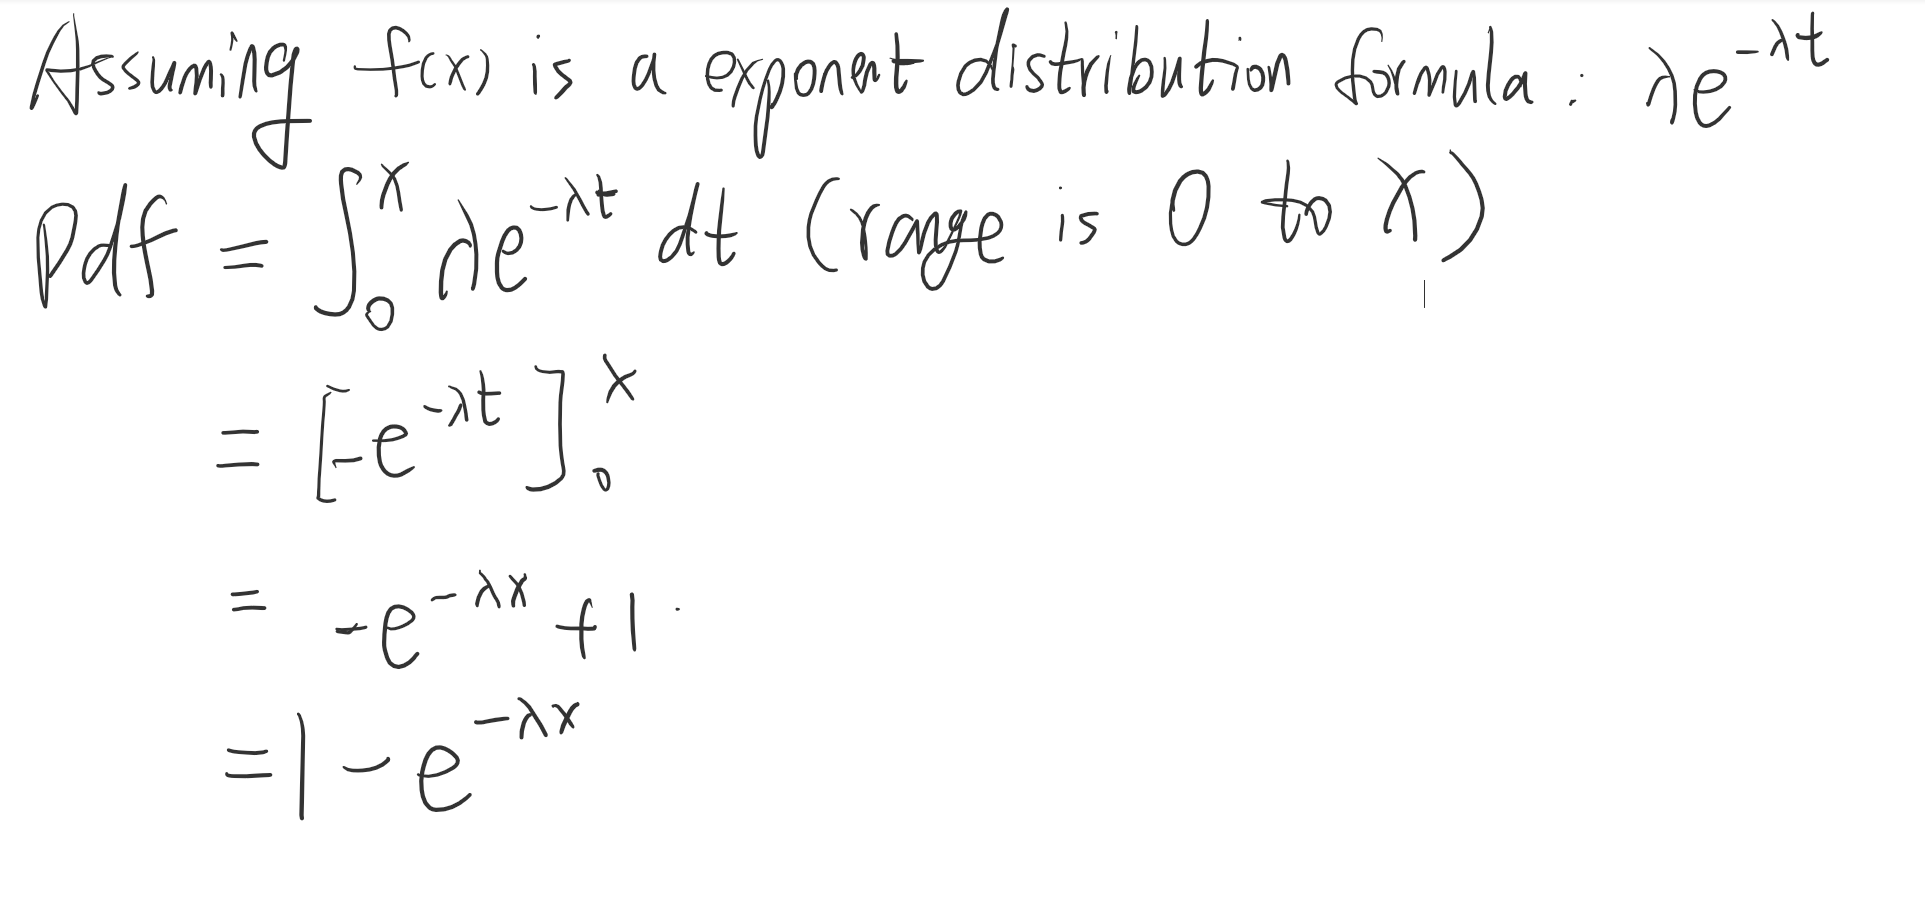 Assuming f(x) is a exponent distribution formula : λe^{-λt}
Pdf = ∫_0^x λe^{-λt} dt (range is 0 to x)
= [-e^{-λt}]_0^x
= -e^{-λx} + 1
= 1 - e^{-λx}